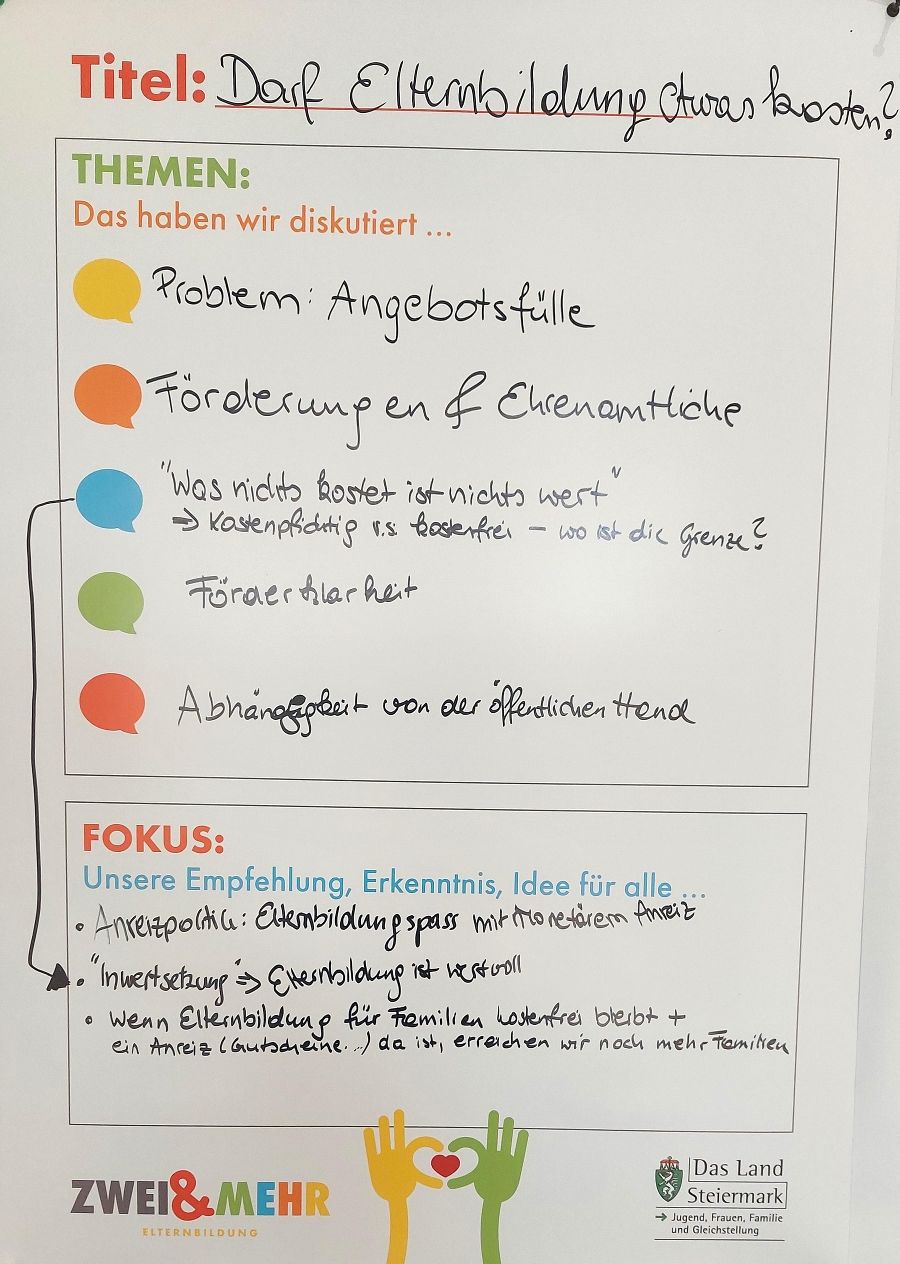 Titel: Darf Elternbildung etwas kosten?
THEMEN:
Das haben wir diskutiert ...
Problem: Angebotsfülle
Förderungen & Ehrenamtliche
"Was nichts kostet ist nichts wert"
⇒ Kostenpflichtig v.s. kostenfrei – wo ist die Grenze?
Förderklarheit
Abhängigkeit von der öffentlichen Hand
FOKUS:
Unsere Empfehlung, Erkenntnis, Idee für alle ...
• Anreizpolitik: Elternbildungspass mit Monetärem Anreiz
• "Inwertsetzung" ⇒ Elternbildung ist wertvoll
• wenn Elternbildung für Familien kostenfrei bleibt +
ein Anreiz (Gutscheine...) da ist, erreichen wir noch mehr Familien
ZWEI&MEHR
ELTERNBILDUNG
Das Land
Steiermark
→ Jugend, Frauen, Familie
und Gleichstellung